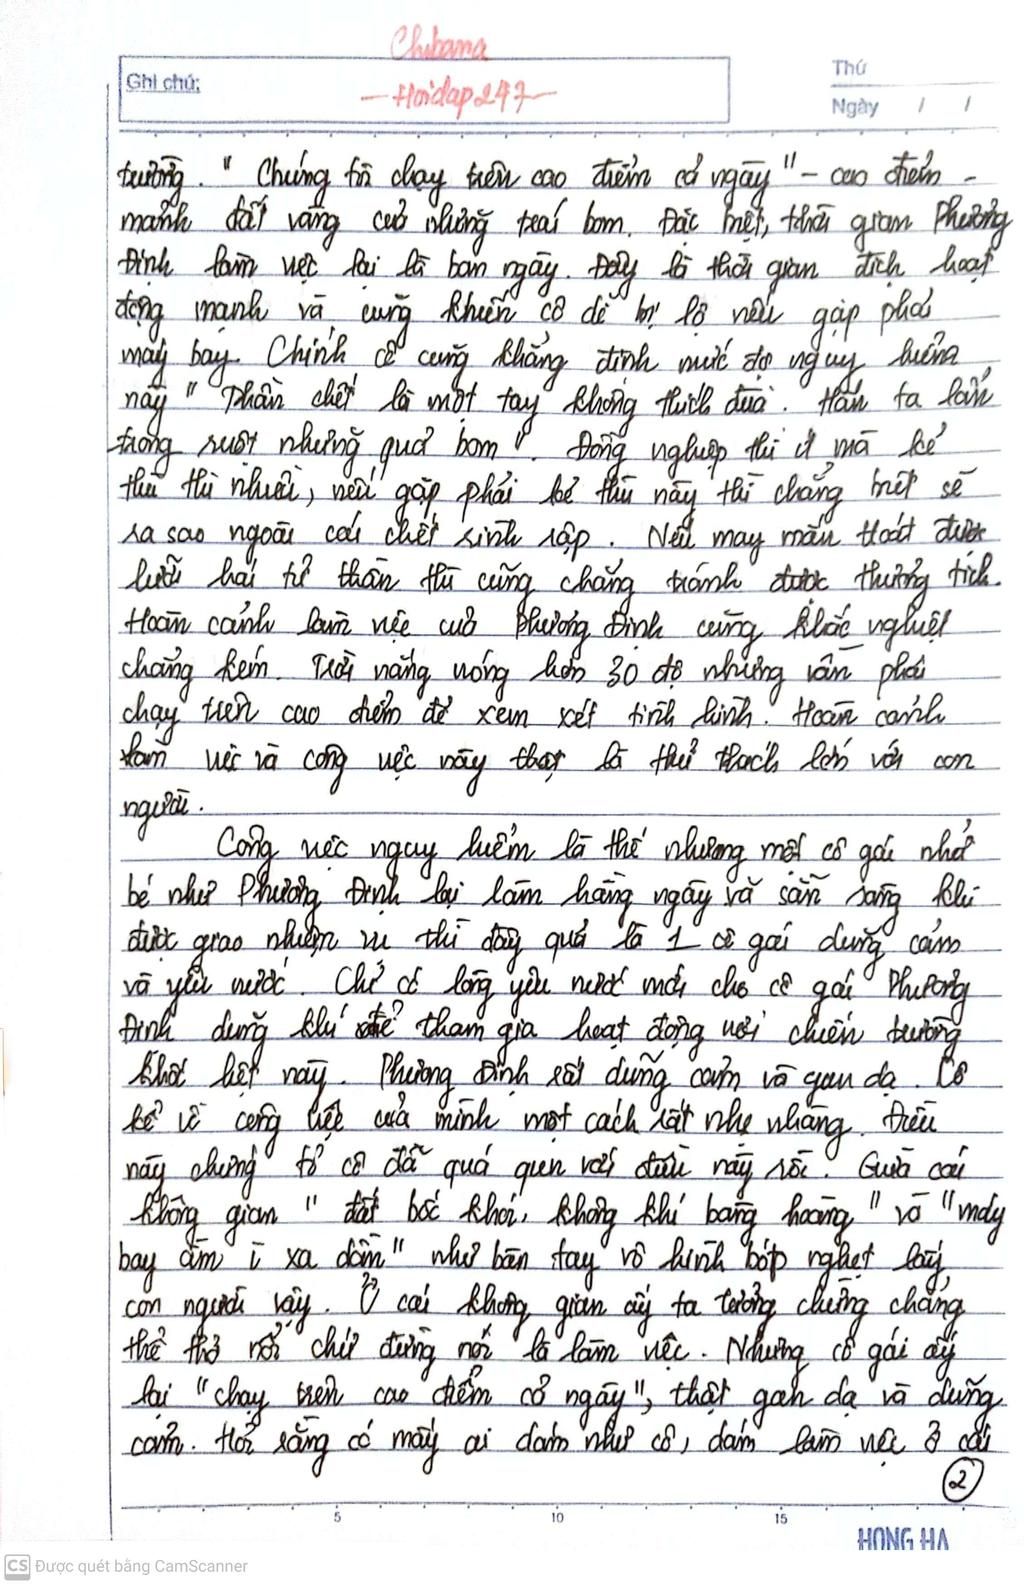 Chibana
Ghi chú:
-Hoidap247-
Thứ
Ngày / /
trường. "Chúng tôi chạy trên cao điểm cả ngày" - cao điểm -
mảnh đất vàng của những trái bom. Đặc biệt, thời gian Phương
Định làm việc lại là ban ngày. Đây là thời gian địch hoạt
động mạnh và cũng khiến cô dễ bị lộ nếu gặp phải
máy bay. Chính cô cũng khẳng định mức độ nguy hiểm
này "Thần chết là một tay không thích đùa. Hắn ta lẩn
trong ruột những quả bom". Đồng nghiệp thì ít mà kẻ
thù thì nhiều, nếu gặp phải kẻ thù này thì chẳng biết sẽ
ra sao ngoài cái chết rình rập. Nếu may mắn thoát được
lưỡi hái tử thần thì cũng chẳng tránh được thương tích.
Hoàn cảnh làm việc của Phương Định cũng khắc nghiệt
chẳng kém. Trời nắng nóng hơn 30 độ nhưng vẫn phải
chạy trên cao điểm để xem xét tình hình. Hoàn cảnh
làm việc và công việc này thật là thử thách lớn với con
người.
Công việc nguy hiểm là thế nhưng một cô gái nhỏ
bé như Phương Định lại làm hằng ngày và sẵn sàng khi
được giao nhiệm vụ thì đây quả là 1 cô gái dũng cảm
và yêu nước. Chỉ có lòng yêu nước mới cho cô gái Phương
Định dũng khí để tham gia hoạt động nơi chiến trường
khốc liệt này. Phương Định rất dũng cảm và gan dạ. Cô
kể về công việc của mình một cách rất nhẹ nhàng. Điều
này chứng tỏ cô đã quá quen với điều này rồi. Giữa cái
không gian "đất bốc khói, không khí bàng hoàng" và "máy
bay ầm ì xa dần" như bàn tay vô hình bóp nghẹt lấy
con người vậy. Ở cái không gian ấy ta tưởng chừng chẳng
thể thở nổi chứ đừng nói là làm việc. Nhưng cô gái ấy
lại "chạy trên cao điểm cả ngày", thật gan dạ và dũng
cảm. Hỏi rằng có mấy ai dám như cô, dám làm việc ở cái
2
5 10 15
HONG HA
CS Được quét bằng CamScanner